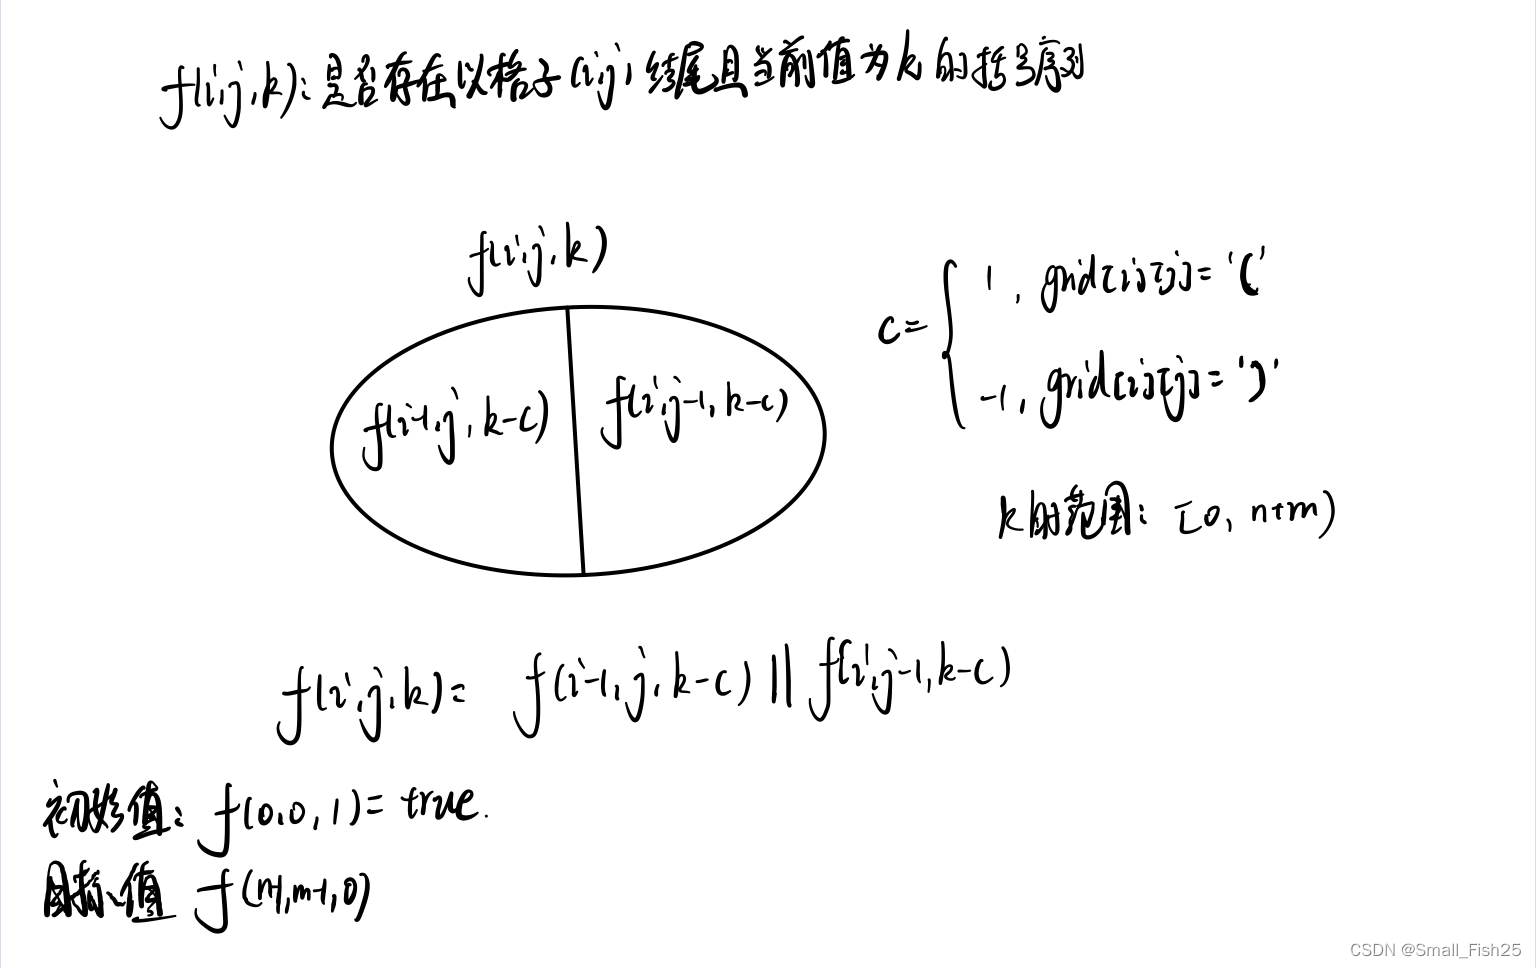 f(i,j,k):是否存在以格子(i,j)结尾且当前值为k的括号序列
f(i,j,k)
f(i-1,j,k-c)
f(i,j-1,k-c)
c=
1, grid[i][j]='('
-1, grid[i][j]=')'
k的范围: [0, n+m)
f(i,j,k)= f(i-1,j,k-c) || f(i,j-1,k-c)
初始值: f(0,0,1)= true.
目标值 f(n-1,m-1,0)
CSDN @Small_Fish25